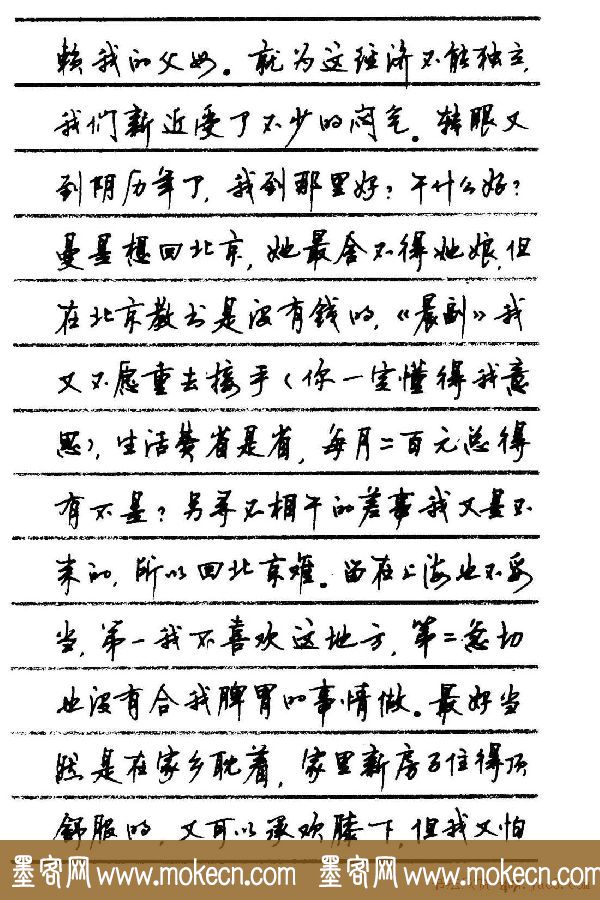 赖我的父母。就为这经济不能独立,
我们新近受了不少的闷气。转眼又
到阴历年了,我到那里好?干什么好?
曼是想回北京,她最舍不得她娘,但
在北京教书是没有钱的,《晨副》我
又不愿重去接手(你一定懂得我意
思),生活费省是省,每月二百元总得
有不是?另寻不相干的差事我又是不
来的,所以回北京难。留在上海也不妥
当,第一我不喜欢这地方,第二急切
也没有合我脾胃的事情做。最好当
然是在家乡耽着,家里新房子住得顶
舒服的,又可以承欢膝下,但我又怕
墨客网 www.mokecn.com 墨客网 www.mokecn.com